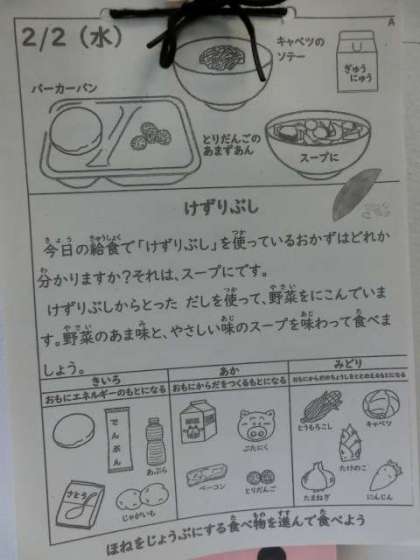 A
2/2（水）
キャベツの
ソテー
ぎゅう
にゅう
バーカーパン
とりだんごの
あまずあん
スープに
けずりぶし
今日の給食で「けずりぶし」を使っているおかずはどれか
分かりますか？それは、スープにです。
けずりぶしからとった だしを使って、野菜をにこんでいま
す。野菜のあま味と、やさしい味のスープを味わって食べま
しょう。
きいろ
おもにエネルギーのもとになる
でんぷん
あぶら
さとう
じゃがいも
あか
おもにからだをつくるもとになる
ぶたにく
ベーコン
とりだんご
みどり
おもにからだのちょうしをととのえるもとになる
とうもろこし
キャベツ
たけのこ
たまねぎ
にんじん
ほねをじょうぶにする食べ物を進んで食べよう